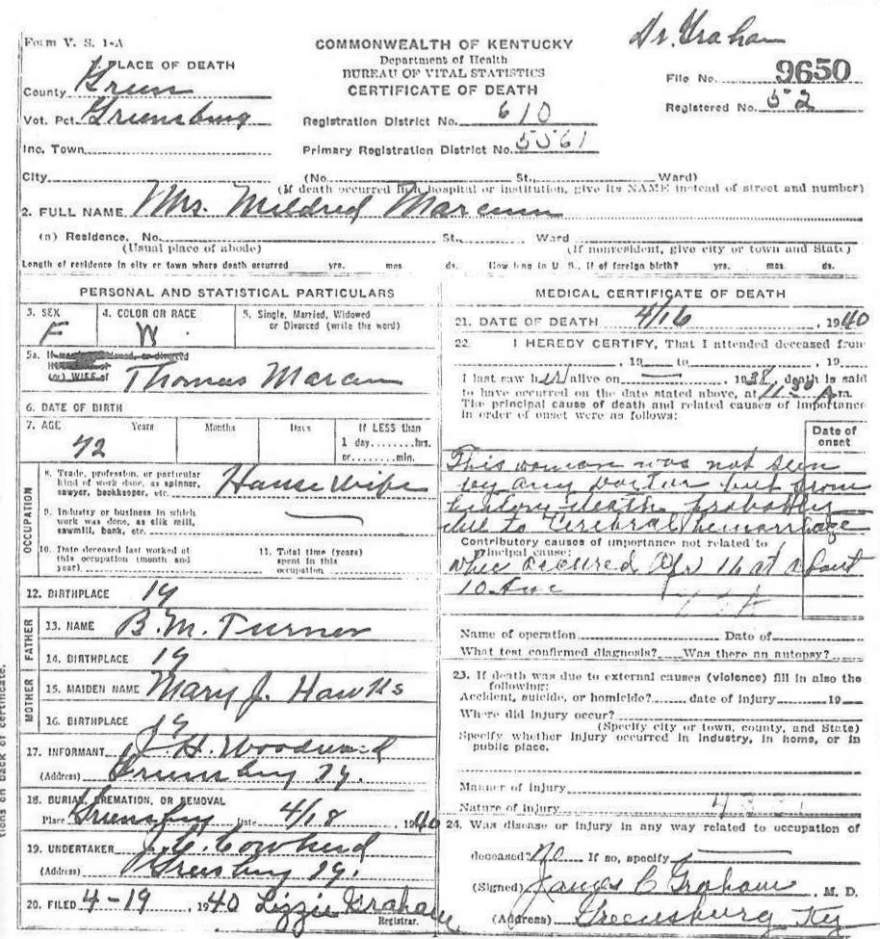 Dr. Graham
Form V. S. 1-A
COMMONWEALTH OF KENTUCKY
Department of Health
BUREAU OF VITAL STATISTICS
CERTIFICATE OF DEATH
File No. 9650
Registered No. 52
1. PLACE OF DEATH
County Green
Vot. Pct. Greensburg
Inc. Town
City
Registration District No. 610
Primary Registration District No. 5561
(No. St., Ward)
(If death occurred in a hospital or institution, give its NAME instead of street and number)
2. FULL NAME Mrs. Mildred Marcum
(a) Residence, No. St., Ward
(Usual place of abode) (If nonresident, give city or town and State)
Length of residence in city or town where death occurred yrs. mos. ds. How long in U. S., if of foreign birth? yrs. mos. ds.
PERSONAL AND STATISTICAL PARTICULARS
3. SEX F
4. COLOR OR RACE W.
5. Single, Married, Widowed
or Divorced (write the word)
5a. If married, widowed, or divorced
(or) WIFE of Thomas Marcum
6. DATE OF BIRTH
7. AGE Years Months Days If LESS than
72 1 day........hrs.
or........min.
OCCUPATION
8. Trade, profession, or particular
kind of work done, as spinner,
sawyer, bookkeeper, etc. House wife
9. Industry or business in which
work was done, as silk mill,
sawmill, bank, etc.
10. Date deceased last worked at
this occupation (month and
year)
11. Total time (years)
spent in this
occupation
12. BIRTHPLACE Ky
FATHER
13. NAME B. M. Turner
14. BIRTHPLACE Ky
MOTHER
15. MAIDEN NAME Mary J. Hawks
16. BIRTHPLACE Ky
17. INFORMANT J. H. Woodward
(Address) Greensburg Ky.
18. BURIAL, CREMATION, OR REMOVAL
Place Greensburg Date 4/18, 1940
19. UNDERTAKER J. C. Cowherd
(Address) Greensburg Ky.
20. FILED 4-19, 1940 Lizzie Graham
Registrar.
MEDICAL CERTIFICATE OF DEATH
21. DATE OF DEATH 4/16, 1940
22. I HEREBY CERTIFY, That I attended deceased from
, 19 to , 19
I last saw her alive on , 1938, death is said
to have occurred on the date stated above, at 11:30 A.m.
The principal cause of death and related causes of importance
in order of onset were as follows:
Date of
onset
This woman was not seen
by any doctor but from
history death probably
due to Cerebral hemorrhage
Contributory causes of importance not related to
principal cause:
occured Apr 16 at about
10 A.M.
Name of operation Date of
What test confirmed diagnosis? Was there an autopsy?
23. If death was due to external causes (violence) fill in also the
following:
Accident, suicide, or homicide? date of injury 19
Where did injury occur?
(Specify city or town, county, and State)
Specify whether injury occurred in industry, in home, or in
public place.
Manner of injury
Nature of injury
24. Was disease or injury in any way related to occupation of
deceased? No If so, specify
(Signed) James C Graham, M. D.
(Address) Greensburg Ky
tions on back of certificate.